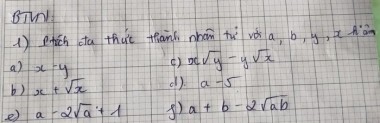 BTVN:
1) Ptích đa thức thành nhân tử với a, b, y, x
a) x-y c) x√y - y√x
b) x + √x d) a - 5
e) a - 2√a + 1 f) a + b - 2√ab